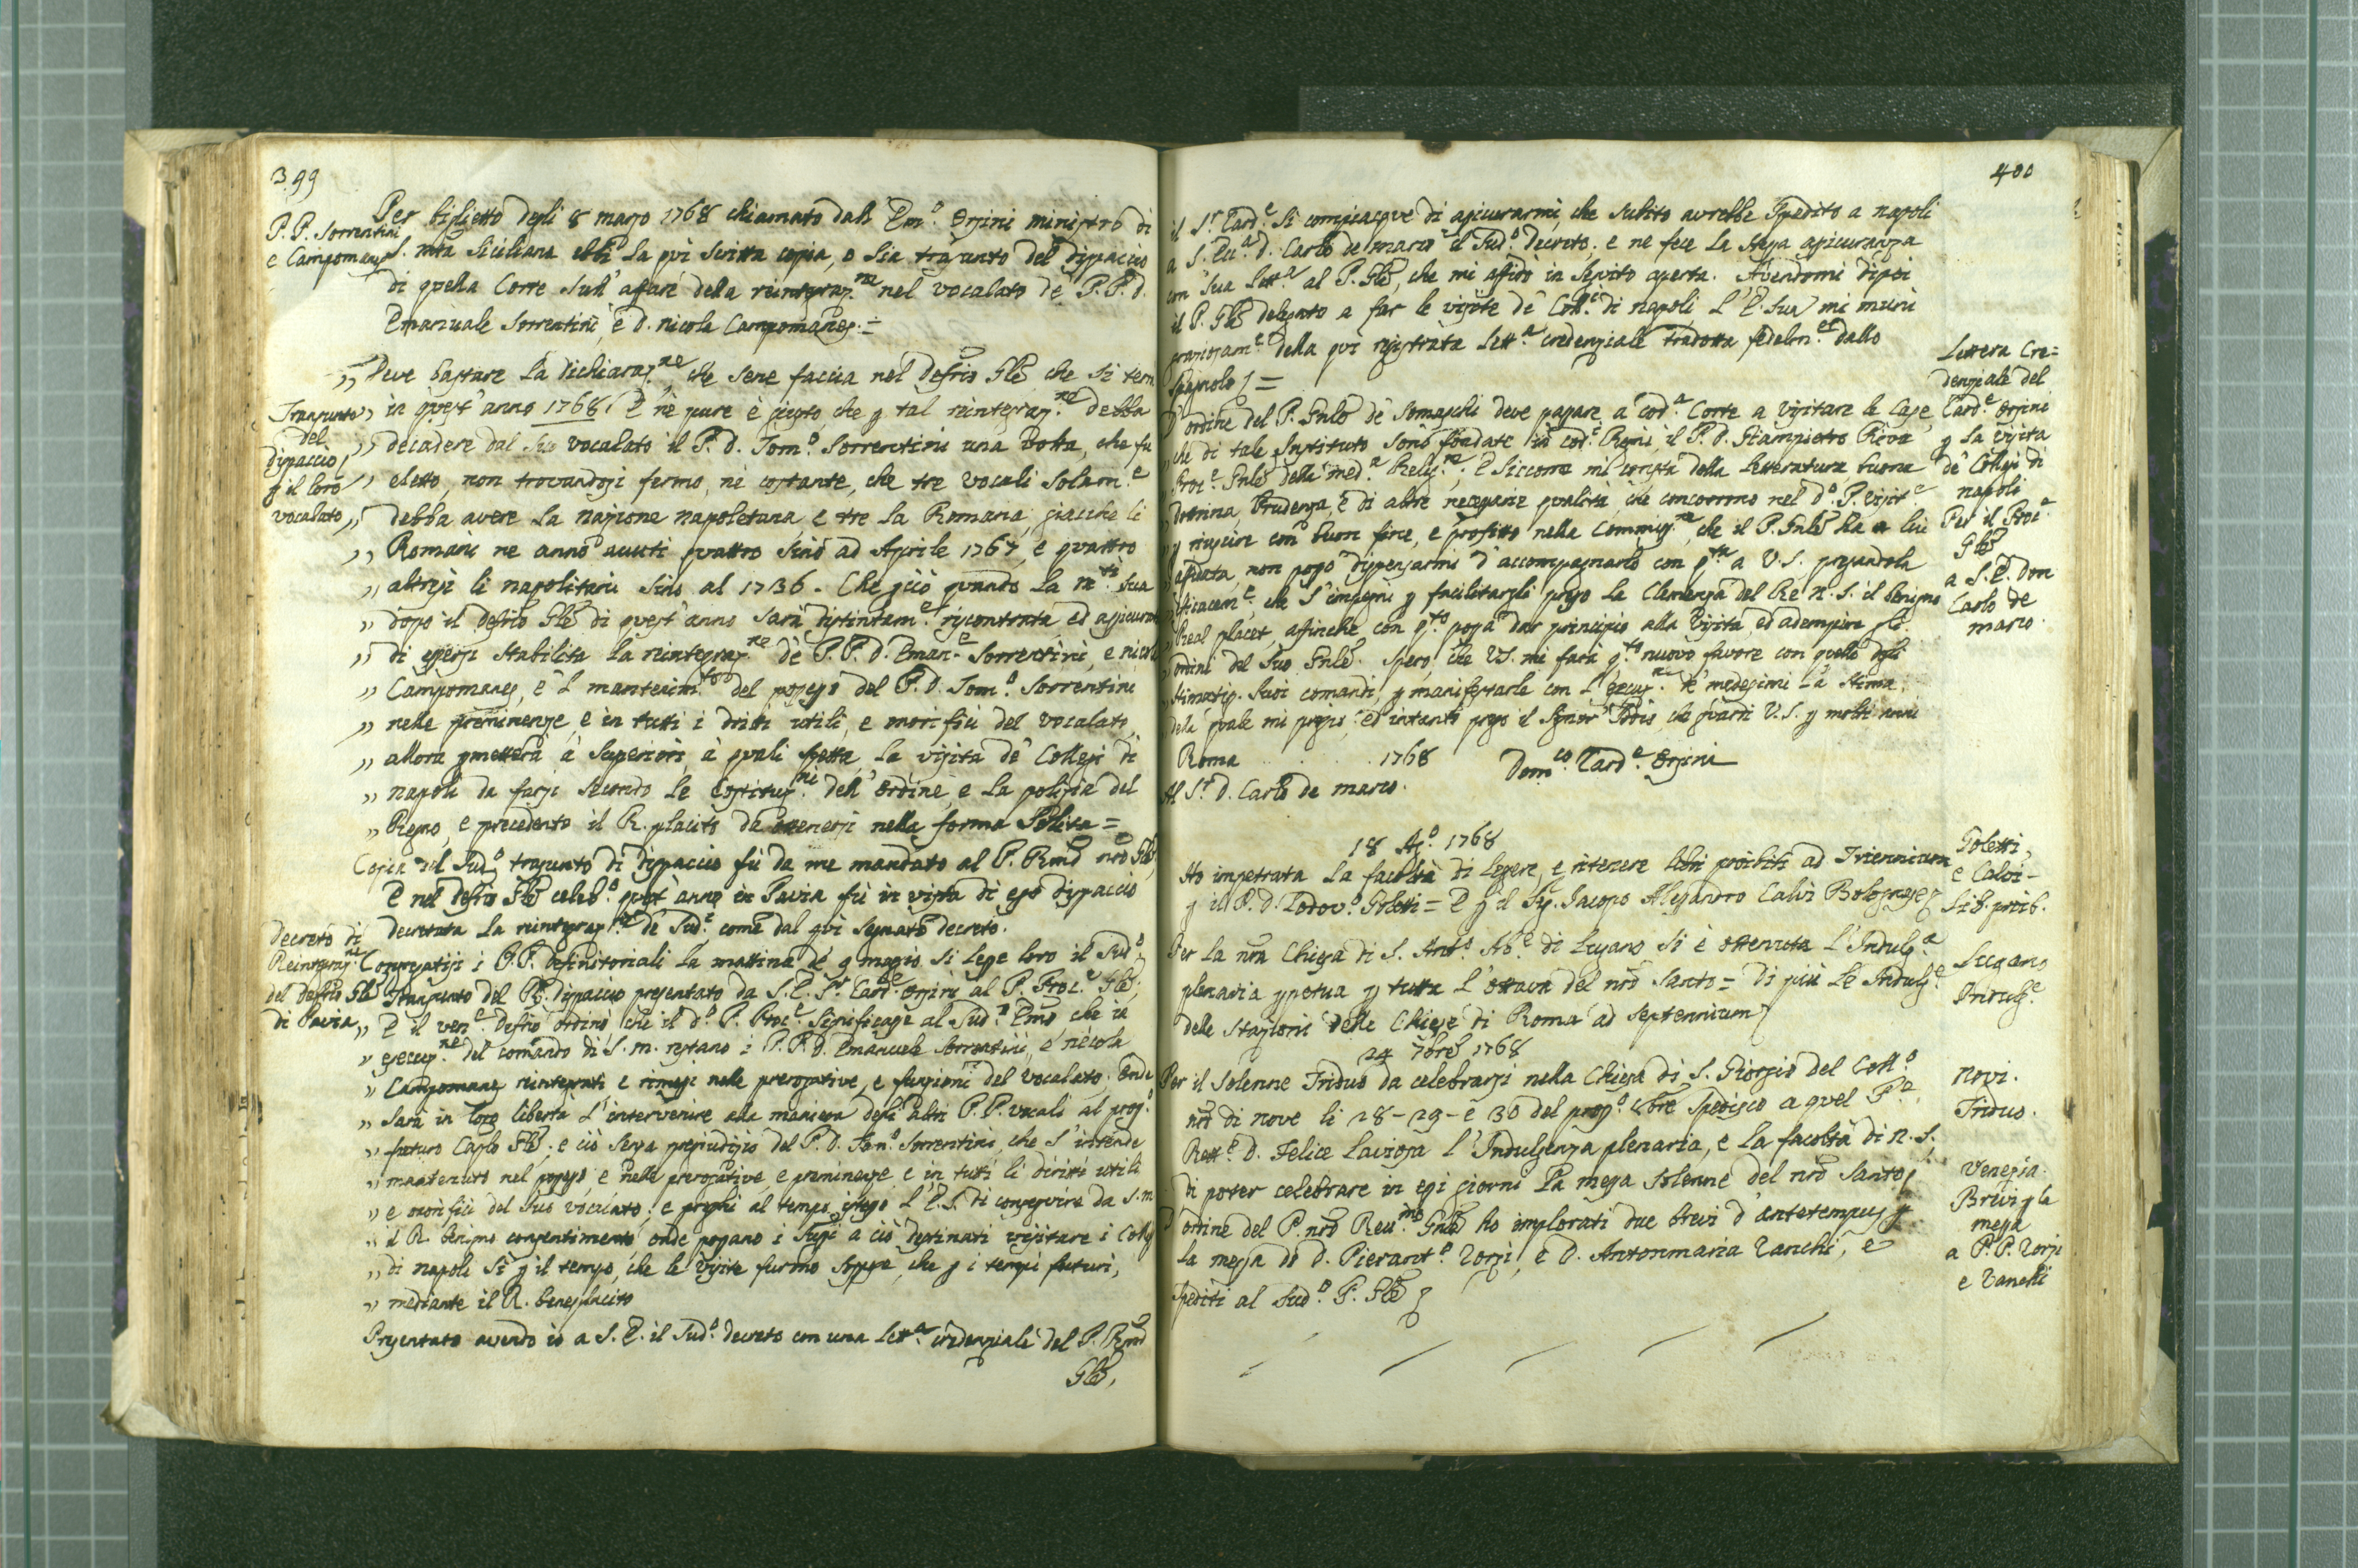 399
P. P. Sorrentini
e Campomanes
Per biglietto degli 8 marzo 1768 chiamato dall' Em.o Orsini ministro di
S. mtà Siciliana ebbi la qui scritta copia, o sia trasunto del dispaccio
di quella Corte sull' affare della reintegraz.ne nel vocalato de P. P. D.
Emanuale Sorrentini, e D. Nicola Campomanes. =
„ Deve bastare la dichiaraz.ne che sene faccia nel Defrio Gle che si terrà
Transunto
del
dispaccio
p il loro
vocalato
„ in quest' anno 1768. E nè pure è giusto, che p tal reintegraz.ne debba
„ decadere dal suo vocalato il P. D. Tom.o Sorrentini una volta, che fu
„ eletto, non trovandosi fermo, nè costante, che tre vocali solam.e
„ debba avere la nazione napoletana, e tre la Romana, giacchè li
„ Romani ne anno avuti quattro sino ad Aprile 1767, e quattro
„ altresì li napolitani sino al 1736. Che pciò quando la m.tà sua
„ dopo il defrio Gle di quest' anno sarà distintam.e riscontrata ed assicurata
„ di essersi stabilita la reintegraz.ne de P. P. D. Eman.e Sorrentini, e nicola
„ Campomanes, e 'l mantenim.to del possesso del P. D. Tom.o Sorrentini
„ nelle preminenze, e in tutti i dritti utili, e onorifici del vocalato,
„ allora pmetterà a' Superiori, a quali spetta, la visita de' Collegi di
„ napoli da farsi secondo le Costituz.ni dell' Ordine, e la polizia del
„ Regno, e precedente il R. placito da ottenersi nella forma solita =
Copia del sud.o trasunto di dispaccio fù da me mandato al P. Rmo nro Gle,
E nel defrio Gle celeb.o quest' anno in Pavia fù in vista di esso dispaccio
decretata la reintegraz.ne de' sud.i come dal qui segnato decreto.
Decreto di
Reintegraz.ne
del Defrio Gle
di Pavia
Congregatisi i P. P. definitoriali la mattina de' 9 maggio si lesse loro il sud.o
Transunto del Rl. dispaccio presentato da S. E. Sr. Card.e Orsini al P. Proc.e Gle;
„ E il ven.e Defrio ordinò che il d.o P. Proc.e significasse al sud.o Emo che in
„ esecuz.ne del comando di S. M. restano i P. P. D. Emanuele Sorrentini, e nicola
„ Campomanes reintegrati e rimessi nelle prerogative, e funzioni del vocalato. Onde
„ sarà in loro libertà l' intervenire alla maniera degli altri P. P. vocali al pros.o
„ futuro Caplo Gle; e ciò senza pregiudizio del P. D. Tom.o Sorrentini, che s' intende
„ mantenuto nel possesso, e nelle prerogative, e preminenze, e in tutti li diritti utili
„ e onorifici del suo vocalato; e preghi al tempo istesso l' E. S. di conseguire da S. M
„ il R. benigno consentimento onde possano i sugi a ciò destinati visitare i Collegi
„ di napoli sì p il tempo, che le visite furono soppse, che p i tempi futuri,
„ mediante il R. beneplacito
Presentato avendo io a S. E. il sud.o decreto con una lett.a credenziale del P. Rmo
Gle,
400
il Sr. Card.e si compiacque di assicurarmi, che subito avrebbe spedito a napoli
a S. Ecc.a D. Carlo de marco il sud.o decreto; e ne fece la stessa assicuranza
con sua lett.a al P. Gle, che mi affidò in seguito aperta. Avendomi dipoi
il P. Gle delegato a far le visite de' Coll.i di napoli l' E. Sua mi munì
graziosam.e della qui registrata lett.a credenziale tradotta fedelm.e dallo
Spagnolo =
Lettera Cre=
denziale del
Card.e Orsini
p la visita
de' Collegi di
napoli
Per il Proc.e
Gle
a S. E. Don
Carlo de
marco.
D' ordine del P. Gnle de' Somaschi deve passare a cod.a Corte a visitare le Case,
„ che di tale Instituto sono fondate in cod.i Regni, il P. D. Giampietro Riva
„ Proc.e Gnle della med.a Relig.ne; E siccome mi consta della letteratura buona
„ dottrina, prudenza, e di altre necessarie qualità, che concorrono nel d.o P. Visit.e
„ p riuscire con buon fine, e profitto nella Commiss.ne, che il P. Gnle ha a lui
„ affidata, non posso dispensarmi d' accompagnarlo con q.ta a V. S. pregandola
„ che s' impegni p facilitargli presso la Clemenza del Re N. S. il benigno
„ Real placet, affinchè con q.to possa dar principio alla visita, ed adempire gli
„ ordini del suo Gnle. Spero, che V. S. mi farà q.to nuovo favore con quello degli
„ stimatis. suoi comandi, p manifestarle con l' esecuz.ne de' medesimi la stima,
della quale mi pregio; ed intanto prego il Signor Iddio, che guardi V. S. p molti anni
Roma . . . . 1768 Dom.co Card.e Orsini
Al Sr. D. Carlo de marco.
18 Ag.o 1768
Goletti,
e Calvi -
Lib. proib.
Ho impetrata la facoltà di legere, e ritenere libri proibiti ad Triennium
p il P. D. Lodov.o Goletti = E p il Sig. Jacopo Alessandro Calvi Bolognese
Per la nra Chiesa di S. Ant.o Ab.e di Lugano si è ottenuta l' Indulg.a
plenaria ppetua p tutta l' ottava del nro Santo = Di più le Indulg.e
delle Stazioni delle Chiese di Roma ad Septennium
Lugano
Indulg.e
24 7bre 1768
Per il solenne Triduo da celebrarsi nella Chiesa di S. Giorgio del Coll.o
nro di nove li 28 - 29 - e 30 del pros.o 8bre spedisco a quel P.e
Rett.e D. Felice Laviosa l' Indulgenza plenaria, e la facoltà di N. S.
di poter celebrare in essi giorni la messa solenne del nro Santo
Novi.
Triduo.
D' ordine del P. nro Reu.mo Gnle ho implorati due brevi d' antetempus p
la messa di D. Pierant.o Zorzi, e D. Antonmaria Zanchi, e
spediti al sud.o P. Gle
Venezia.
Brevi p la
messa
a P. P. Zorzi
e Zanchi